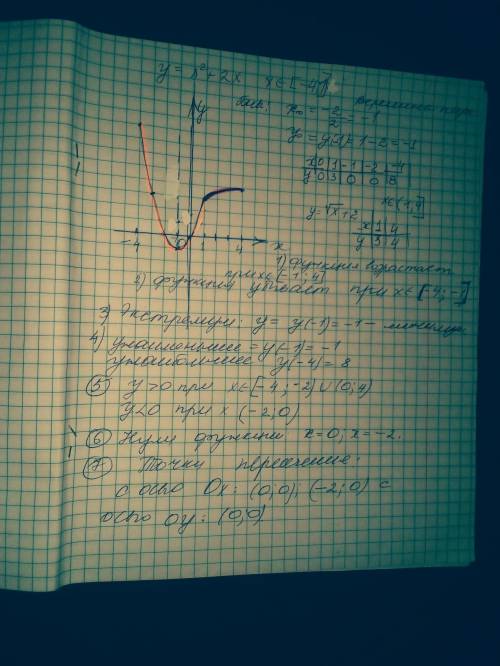 y = x² + 2x x ∈ [-4; 1]
вершина пар.
x₀ = -2/2 = -1
y₀ = y(-1) = 1 - 2 = -1
x 0 1 -1 -2 -4
y 0 3 0 0 8
x ∈ (1; 4]
y = √x + 2
x 1 4
y 3 4
y
-4 0 1 4 x
1) функция возрастает
при x ∈ [-1; 4]
2) функция убывает при x ∈ [-4; -1]
3) Экстремум: y = y(-1) = -1 - минимум
4) унаименьшее = y(-1) = -1
унаибольшее y(-4) = 8
5) y > 0 при x ∈ [-4; -2) ∪ (0; 4)
y < 0 при x (-2; 0)
6) Нули функции x = 0; x = -2.
7) Точки пересечение:
с осью Ox: (0; 0); (-2; 0) с
осью Oy: (0; 0)